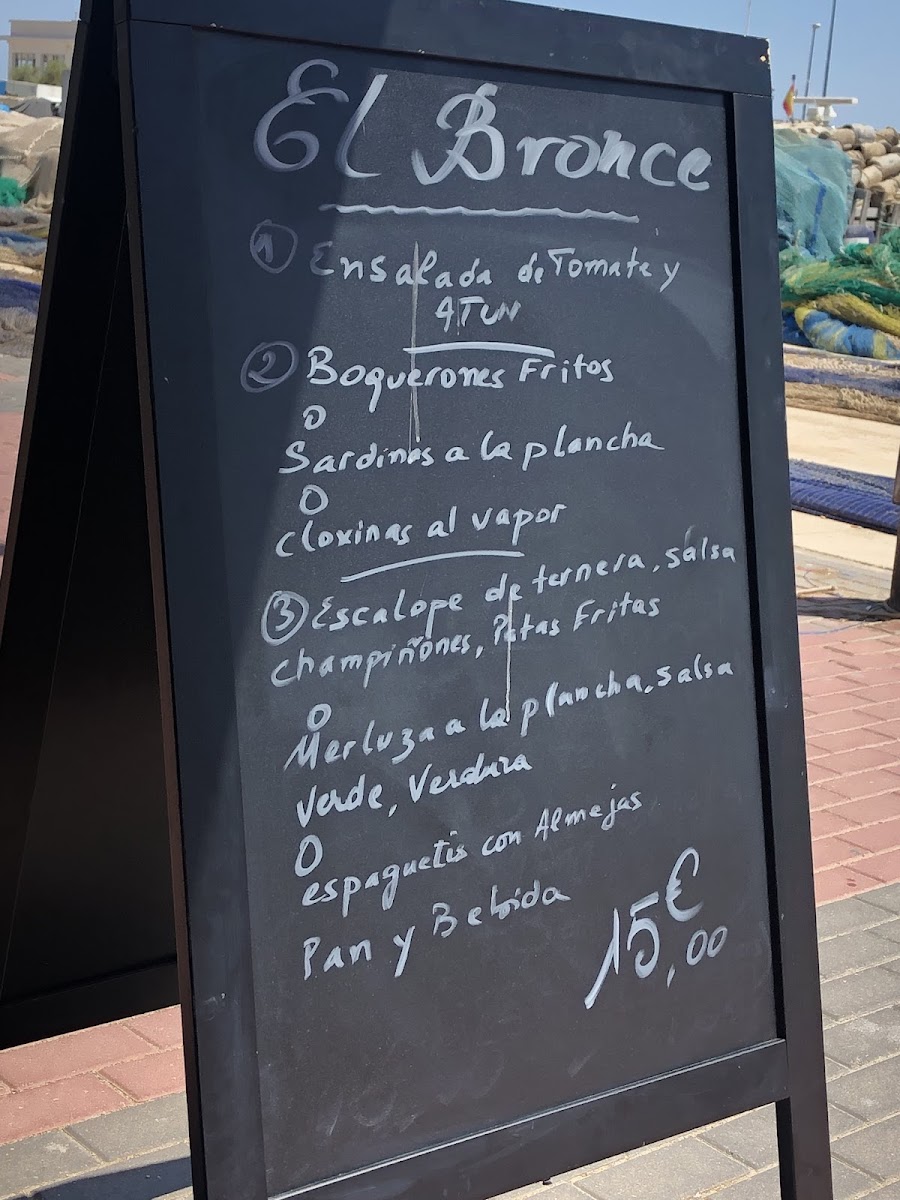 El Bronce
1 Ensalada de Tomate y
ATUN
2 Boquerones Fritos
o
Sardinas a la plancha
O
cloxinas al vapor
3 Escalope de ternera, salsa
champiñones, Patas Fritas
O
Merluza a la plancha, salsa
verde, Verdura
O
espaguetis con Almejas
Pan y Bebida
15,00€